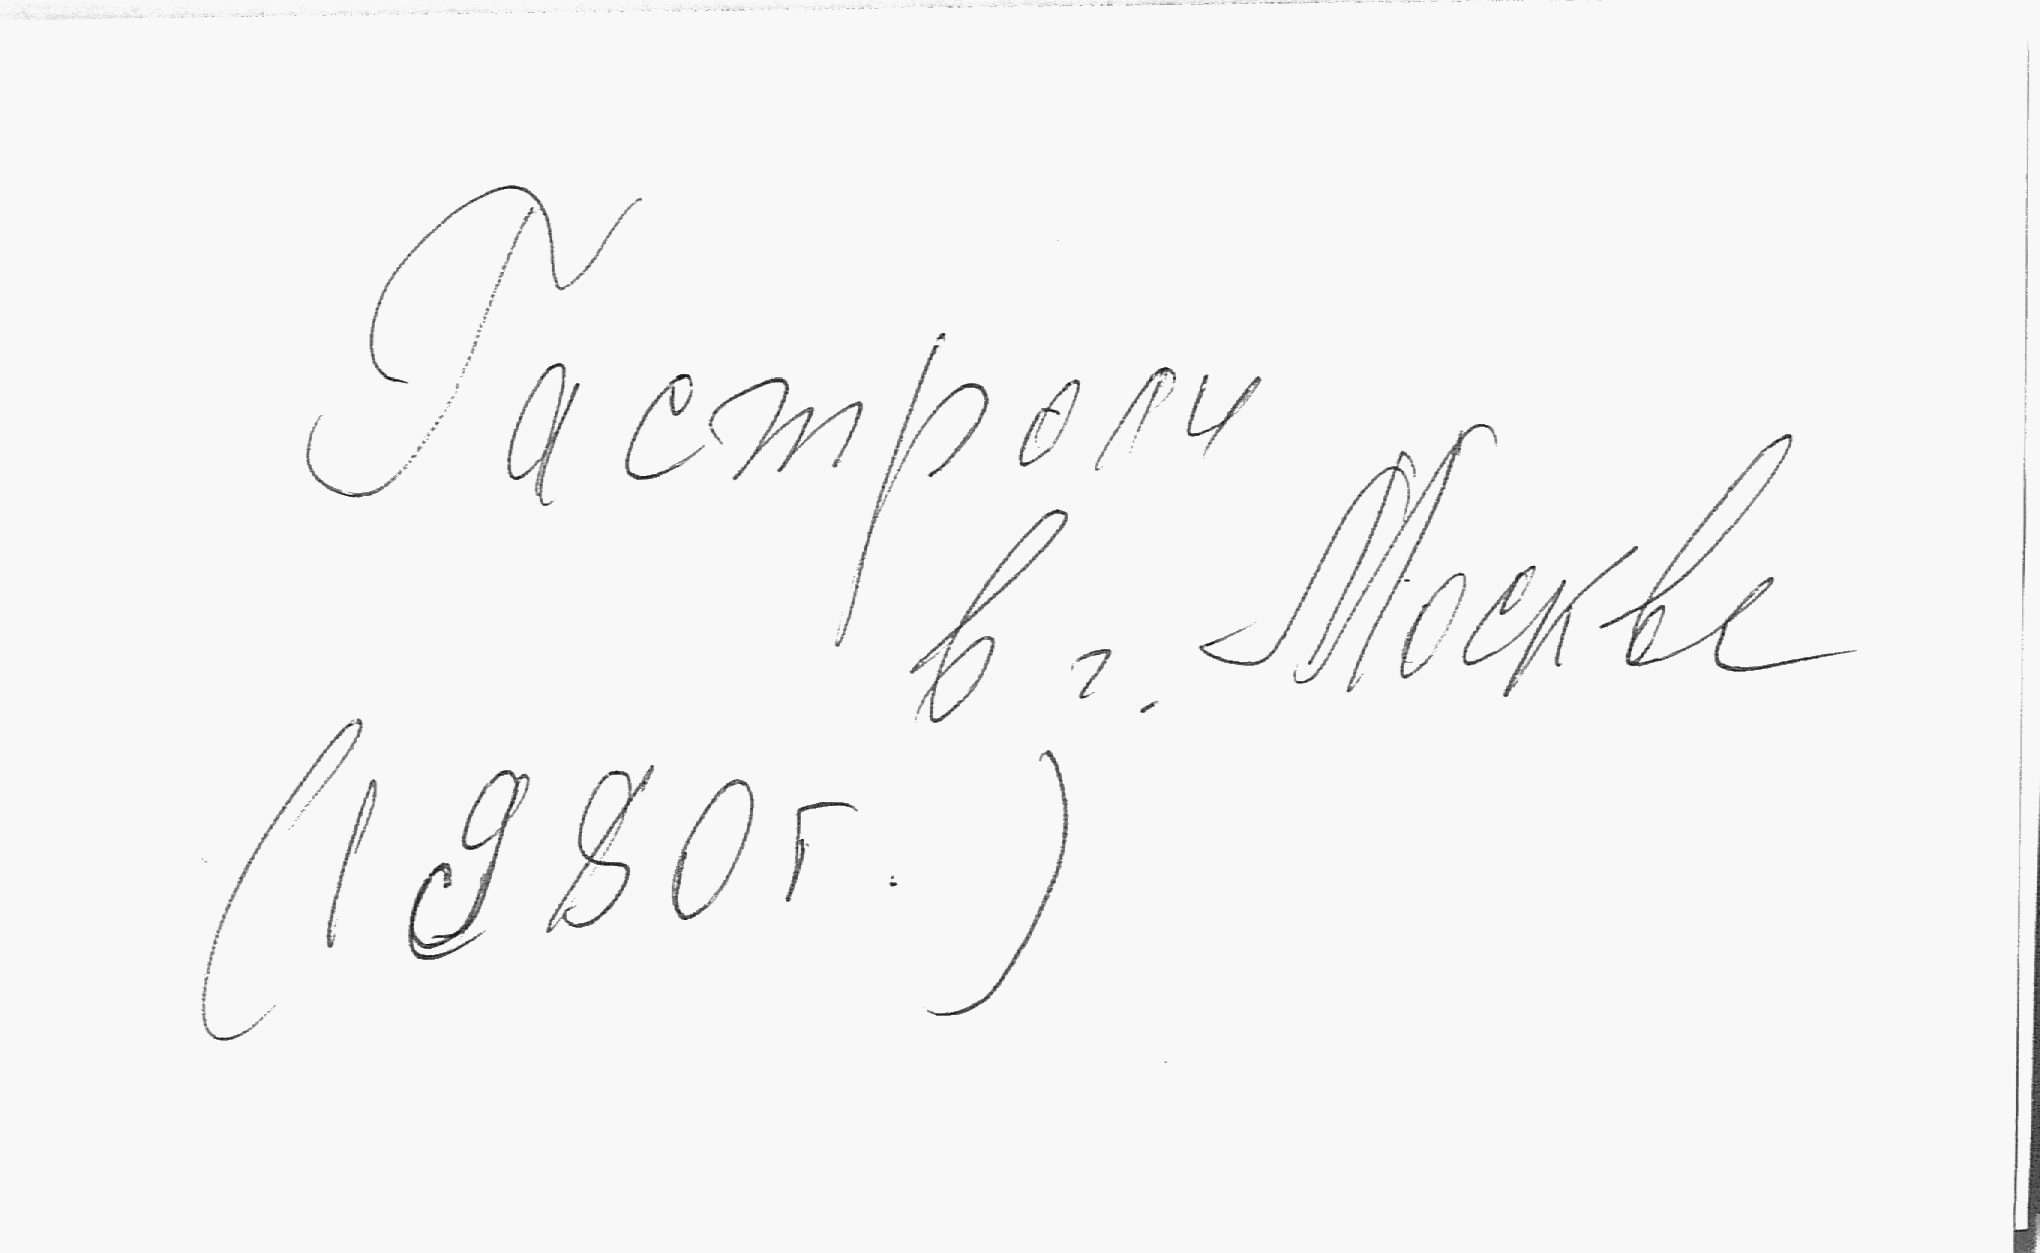 Гастроли
в г. Москве
(1980г.)